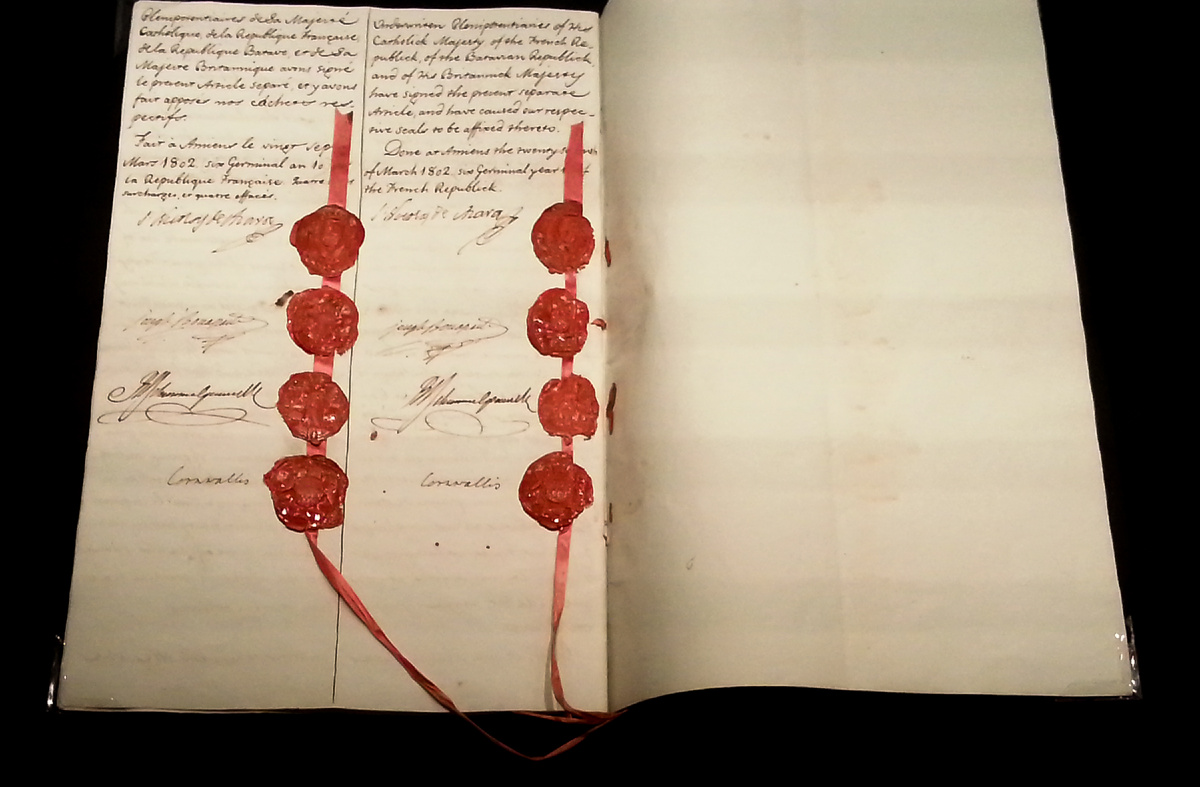 Plenipotentiaires de Sa Majesté
Catholique, de la Republique Française,
de la Republique Batave, et de Sa
Majesté Britannique avons signé
le present Article separé, et y avons
fait apposer nos cachets res-
pectifs.
Fait à Amiens le vingt sep
Mars 1802. six Germinal an 10
la Republique Française. Quatre
surchargés, et quatre effacés.
J. Nicolas de Azara
Joseph Bonaparte
RJSchimmelpenninck
Cornwallis
Underwritten Plenipotentiaries of His
Catholick Majesty of the French Re-
publick, of the Batavian Republick
and of His Britannick Majesty
have signed the present separate
Article, and have caused our respec-
tive seals to be affixed thereto.
Done at Amiens the twenty seventh
of March 1802. six Germinal year of
the French Republick.
J. Nicolas de Azara
Joseph Bonaparte
RJSchimmelpenninck
Cornwallis